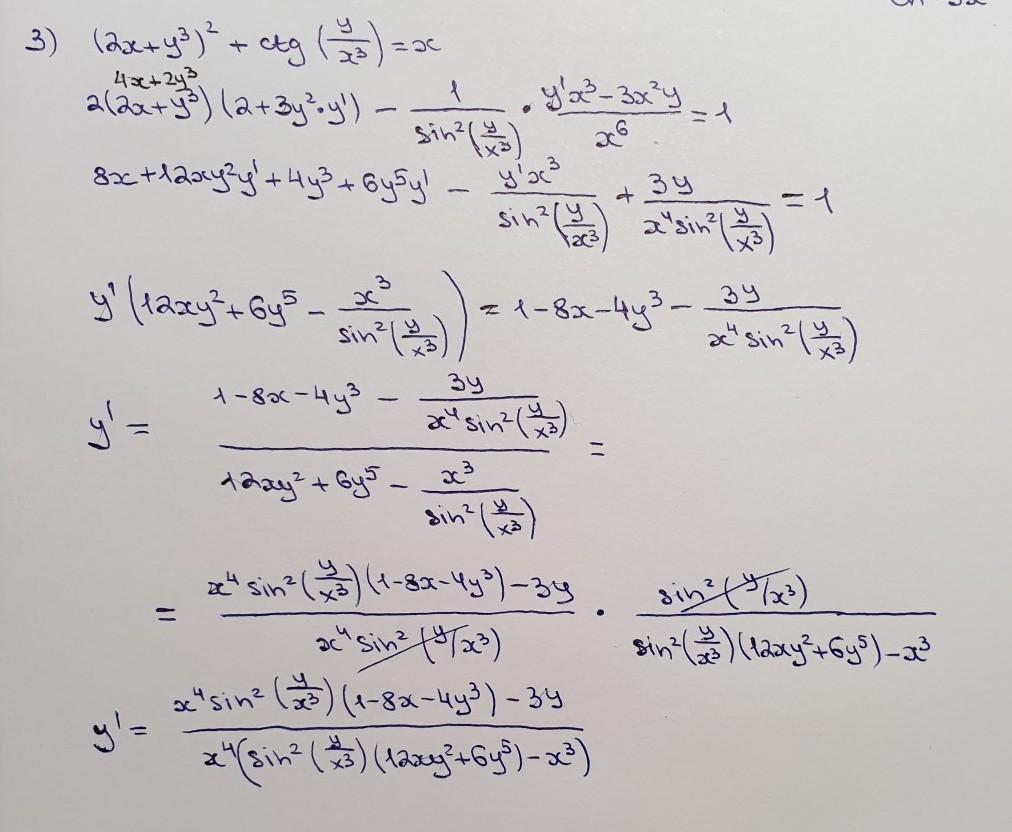 3) (2x+y³)² + ctg (y/x³) = x
4x+2y³
2(2x+y³)(2+3y²·y') - 1/sin²(y/x³) · (y'x³-3x²y)/x⁶ = 1
8x+12xy²y'+4y³+6y⁵y' - y'x³/sin²(y/x³) + 3y/(x⁴sin²(y/x³)) = 1
y'(12xy²+6y⁵ - x³/sin²(y/x³)) = 1-8x-4y³ - 3y/(x⁴sin²(y/x³))
y' = (1-8x-4y³ - 3y/(x⁴sin²(y/x³)))/(12xy²+6y⁵ - x³/sin²(y/x³)) =
= (x⁴sin²(y/x³)(1-8x-4y³)-3y)/(x⁴sin²(y/x³)) · sin²(y/x³)/(sin²(y/x³)(12xy²+6y⁵)-x³)
y' = (x⁴sin²(y/x³)(1-8x-4y³)-3y)/(x⁴(sin²(y/x³)(12xy²+6y⁵)-x³))